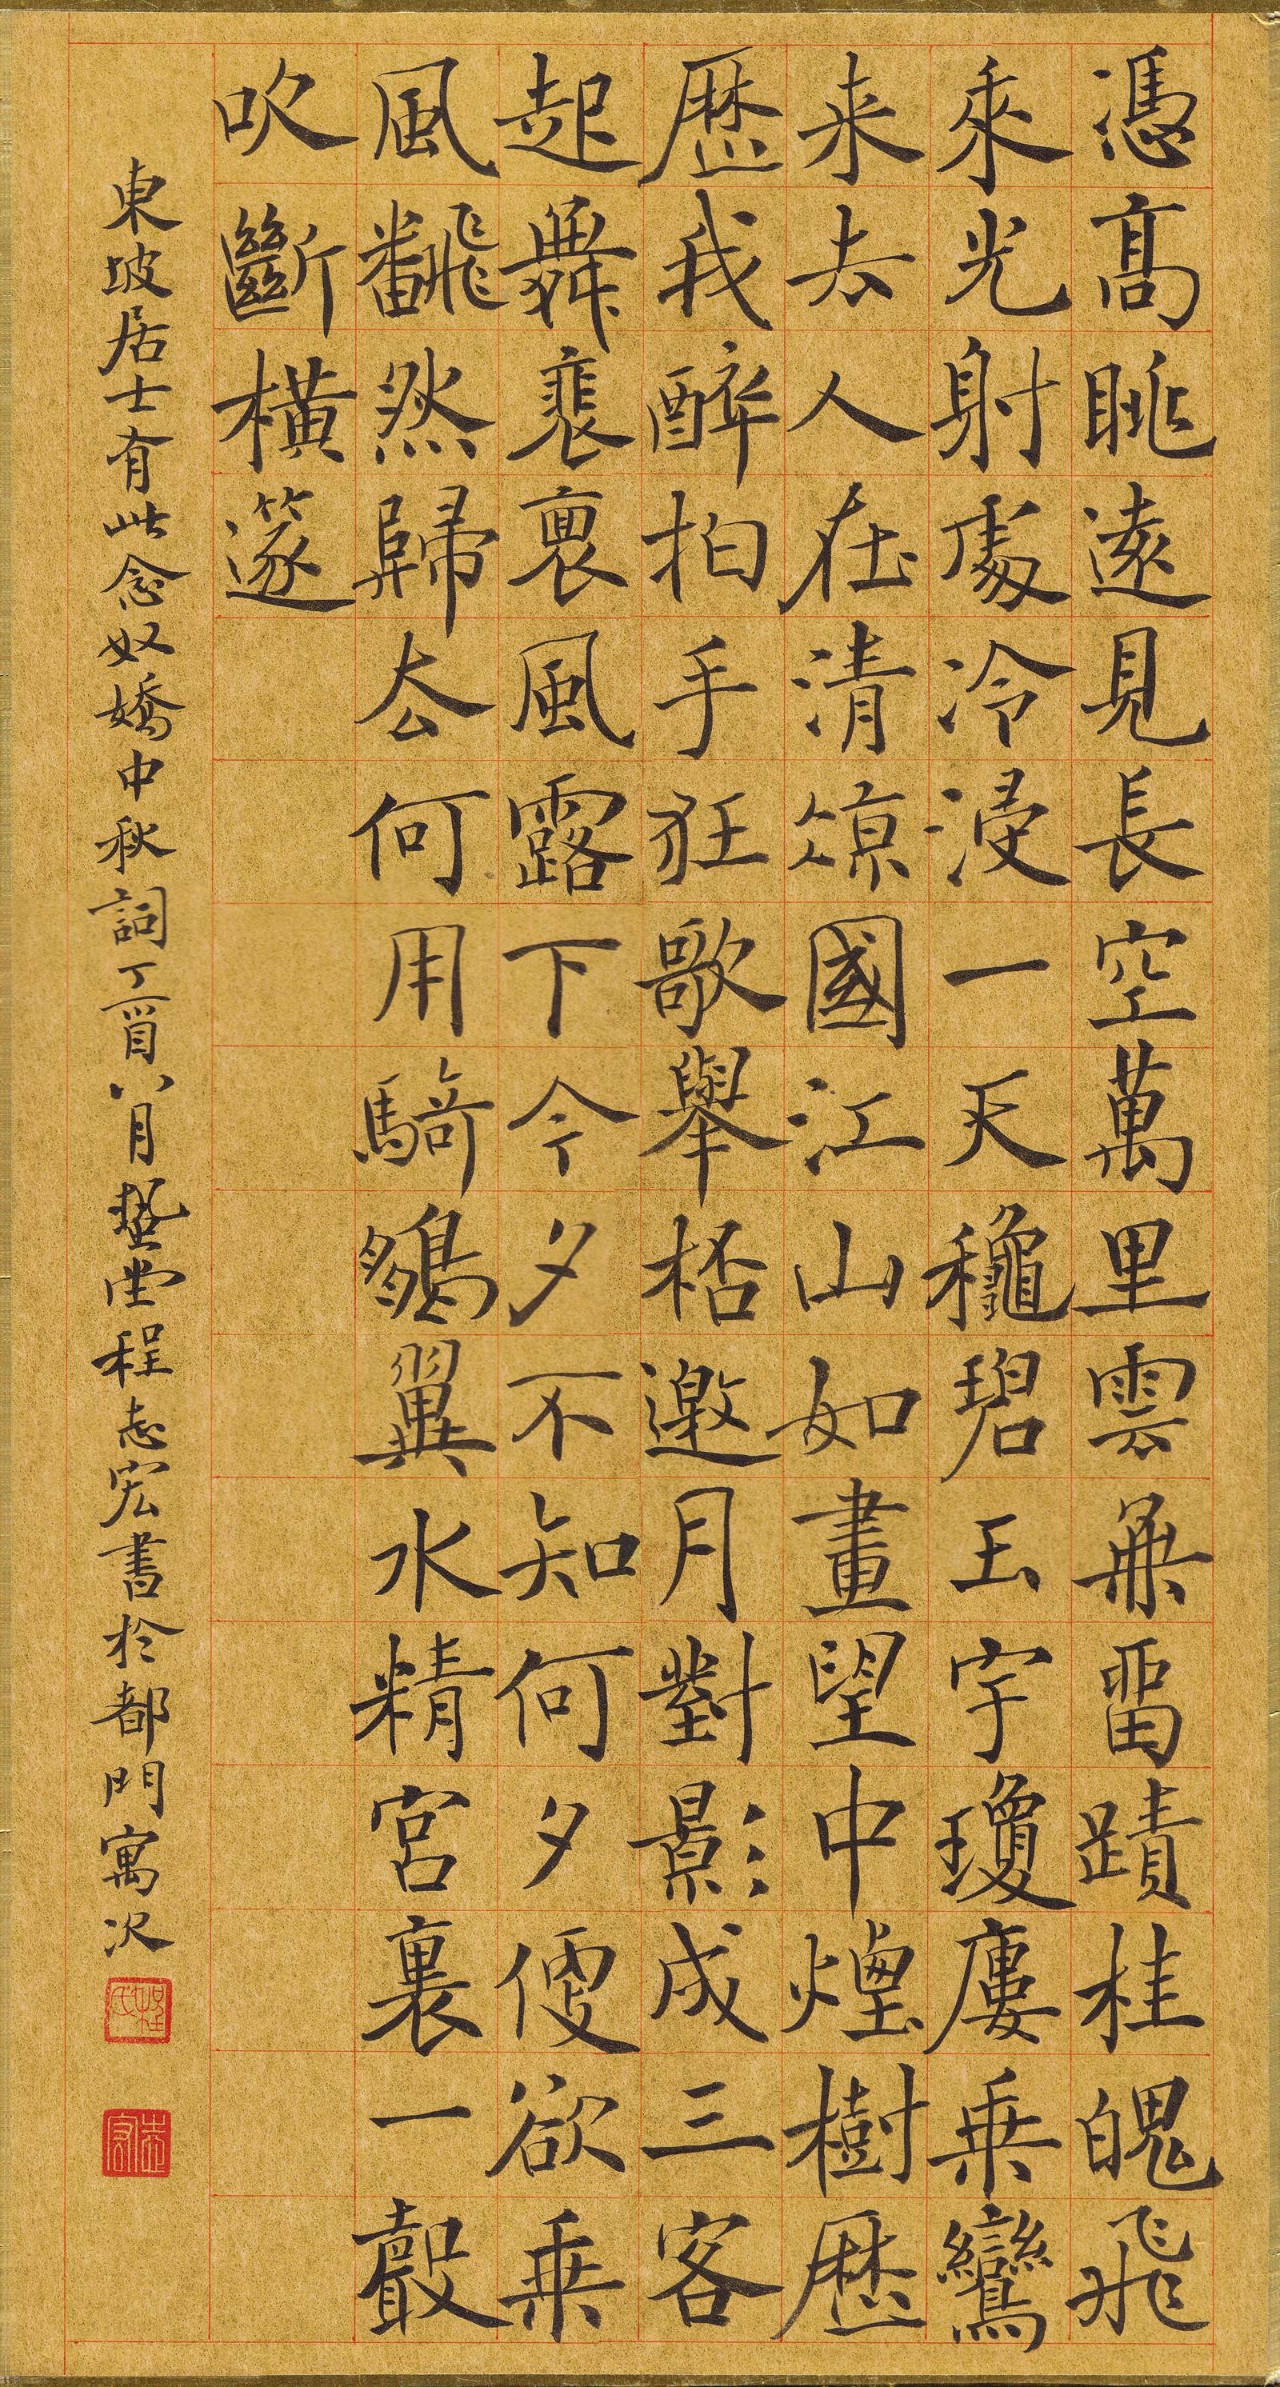 憑高眺遠見長空萬里雲無畱蹟桂魄飛
来光射處冷浸一天穐碧玉宇瓊廔乗鸞
来去人在清涼國江山如畫望中煙樹歷
歷我醉拍手狂歌舉桮邀月對影成三客
起舞裵風露下今夕不知何夕便欲乗
風飜然歸去何用騎鵬翼水精宮裏一聲
吹斷橫篴
東坡居士有此念奴嬌中秋詞丁酉八月蟄堂程志宏書於都門寓次
程氏
志宏